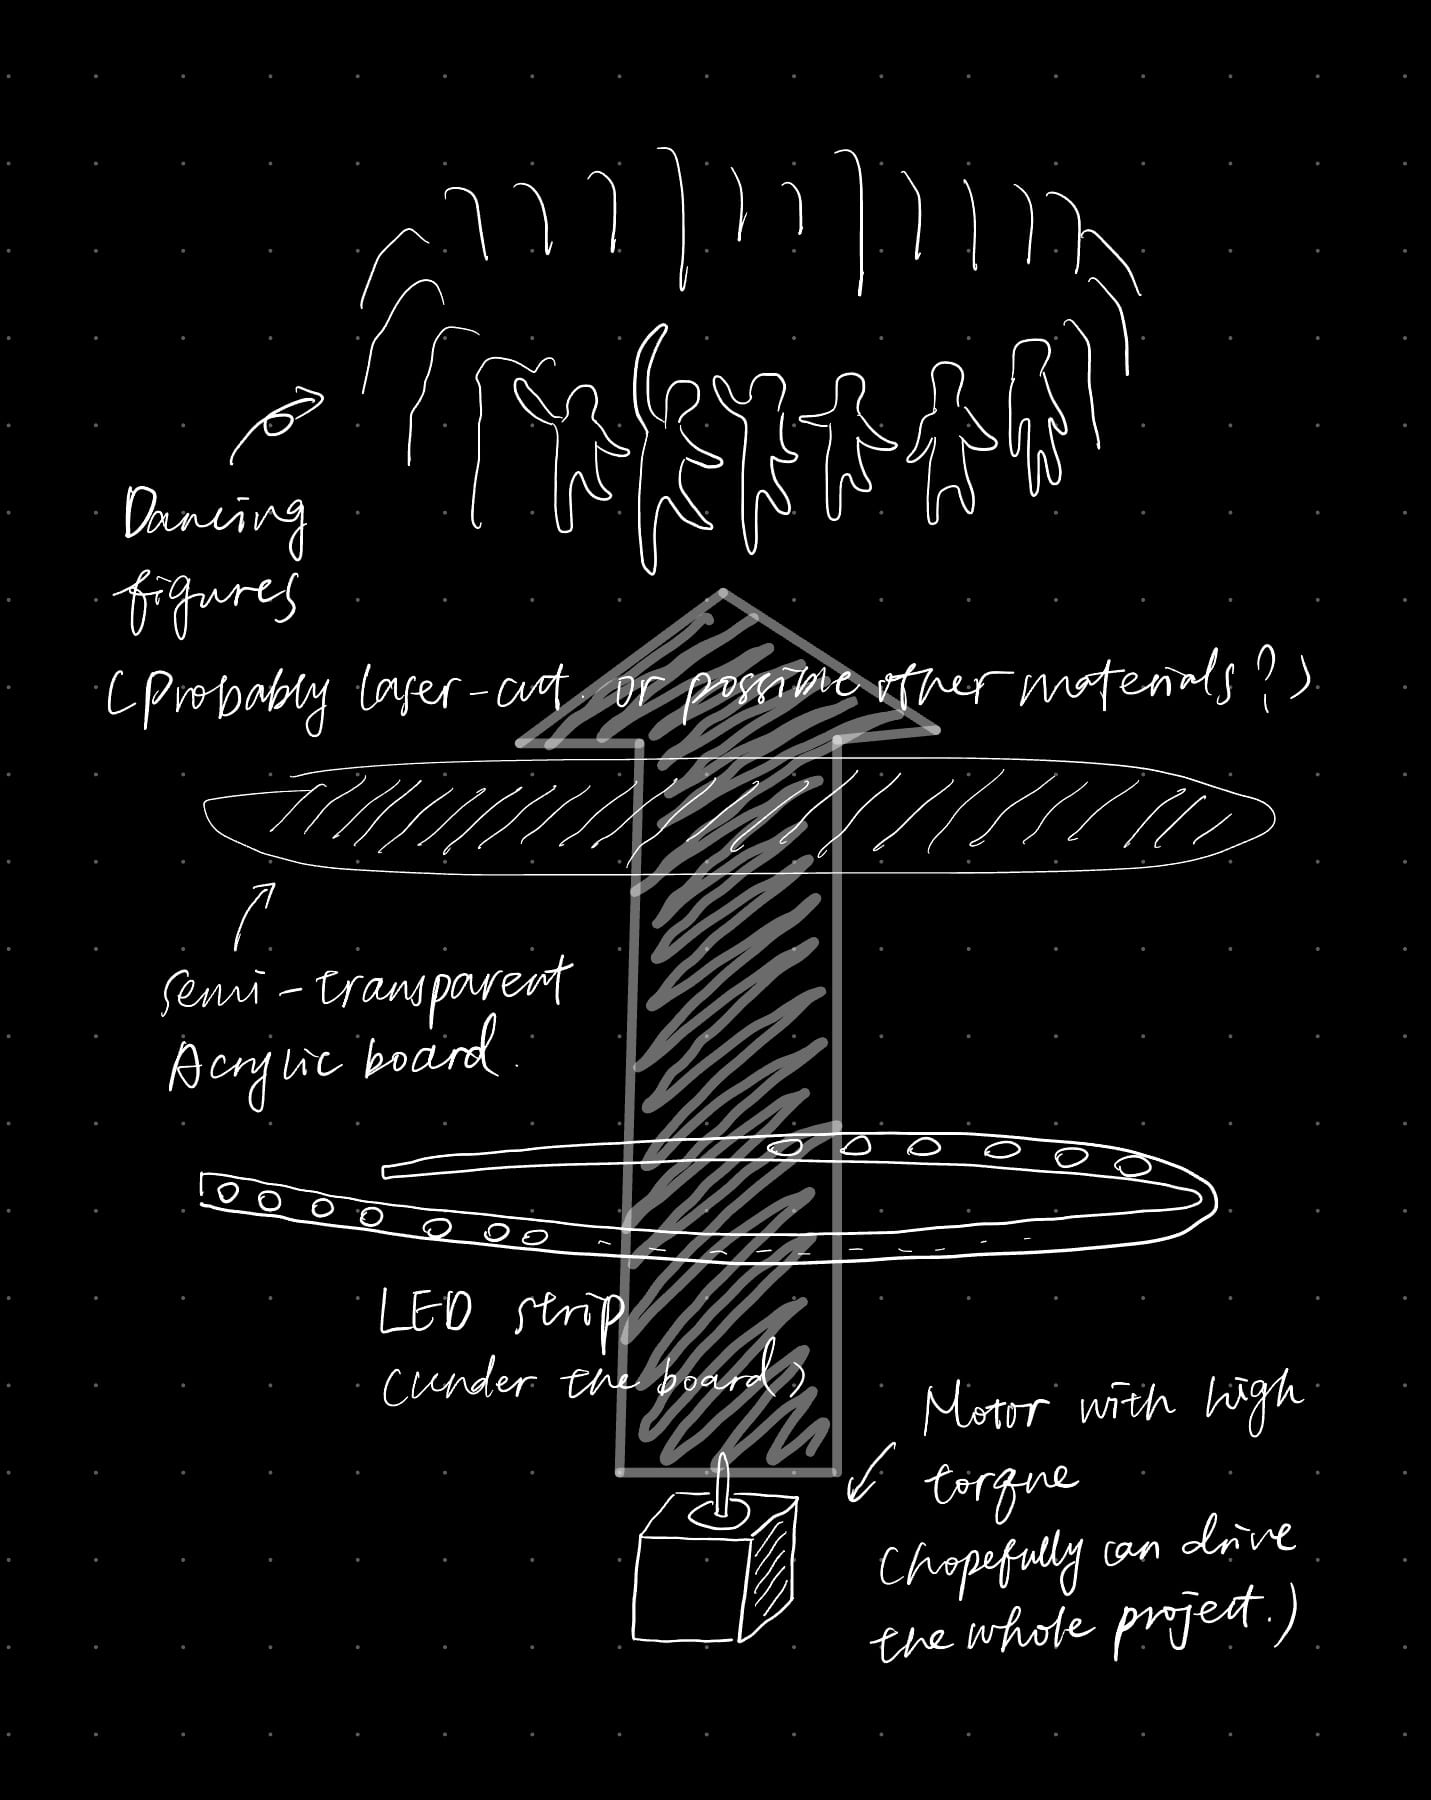 Dancing
figures
(Probably laser-cut. or possible other materials?)
semi-transparent
Acrylic board.
LED strip
(under the board)
Motor with high
torque
(hopefully can drive
the whole project.)